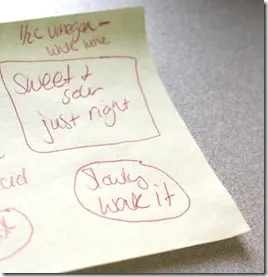 1/2 C vinegar –
white wine
Sweet &
sour
just right
Slowly
work it